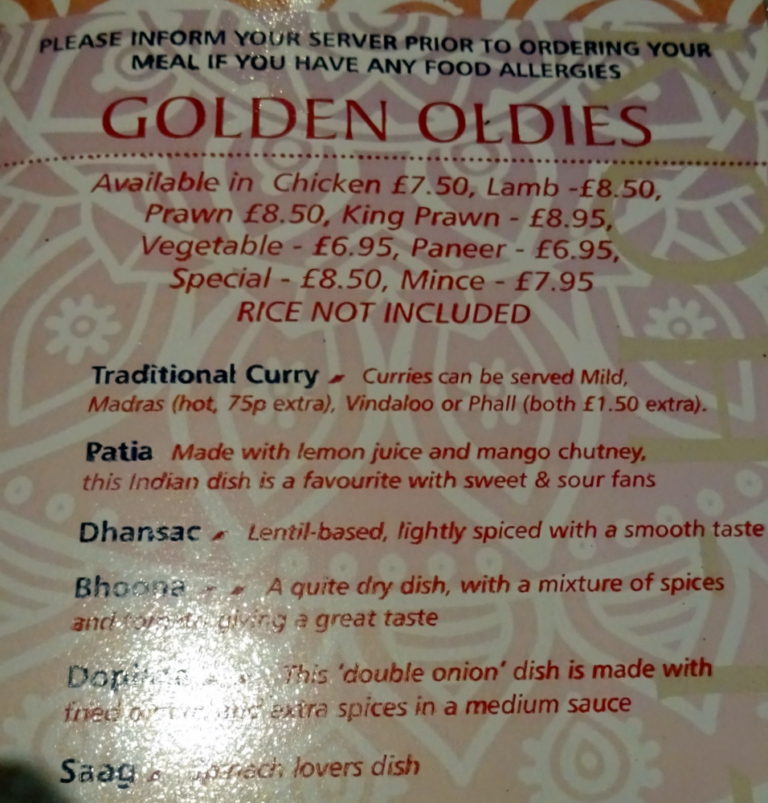 PLEASE INFORM YOUR SERVER PRIOR TO ORDERING YOUR
MEAL IF YOU HAVE ANY FOOD ALLERGIES
GOLDEN OLDIES
Available in Chicken £7.50, Lamb -£8.50,
Prawn £8.50, King Prawn - £8.95,
Vegetable - £6.95, Paneer - £6.95,
Special - £8.50, Mince - £7.95
RICE NOT INCLUDED
Traditional Curry Curries can be served Mild,
Madras (hot, 75p extra), Vindaloo or Phall (both £1.50 extra).
Patia Made with lemon juice and mango chutney,
this Indian dish is a favourite with sweet & sour fans
Dhansac Lentil-based, lightly spiced with a smooth taste
Bhoona A quite dry dish, with a mixture of spices
and tomato giving a great taste
This 'double onion' dish is made with
fried extra spices in a medium sauce
Saag Spinach lovers dish